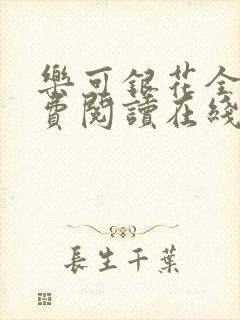 樂可銀花全
費閱讀在綫
長生千葉